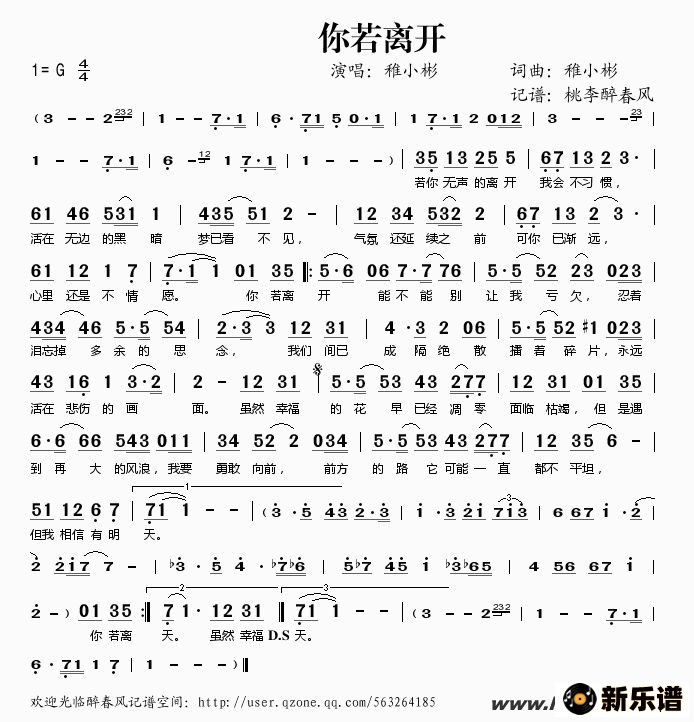 你若离开
1=G 4/4 演唱：稚小彬 词曲：稚小彬
记谱：桃李醉春风
(3 - - 2 232 | 1 - - 7·1 | 6·71 5 0·1 | 1 - - 7·1 | 2 1 2 012 | 3 - - 23
1 - - 7·1 | 6 - 12 1 7·1 | 1 - - - ) | 35 13 25 5 | 67 13 2 3· |
若你 无声 的离 开 我会 不习 惯，
61 46 531 1 | 435 51 2 - | 12 34 532 2 | 67 13 2 3· |
活在 无边 的黑 暗 梦已看 不 见， 气氛 还延 续之 前 可你 已渐 远，
61 12 1 7 | 7·1 1 01 35 |: 5·6 06 7·7 76 | 5·5 52 23 023 |
心里 还是 不 情 愿。 你 若离 开 能 不能 别 让 我 亏 欠， 忍着
434 46 5·5 54 | 2·3 3 12 31 | 4·3 2 06 | 5·5 52 #1 023 |
泪忘掉 多 余的 思 念， 我们 间已 成 隔 绝 散 播 着 碎 片，永远
43 16 1 3·2 | 2 - 12 31 | 5·5 53 43 277 | 12 31 01 35 |
活在 悲伤 的 画 面。 虽然 幸福 的 花 早 已经 凋 零 面临 枯竭， 但 是遇
6·6 66 543 011 | 34 52 2 034 | 5·5 53 43 277 | 12 35 6 - |
到 再 大 的风浪，我要 勇敢 向前， 前方 的 路 它 可能 一 直 都不 平坦，
51 12 6 7 | 71 1 - - | (3·5 43 2·3 | 1·3 21 713 | 6 67 1 ·2 |
但我 相信 有 明 天。
2 217 7 - | b3·5 4 b7b6 | 5b57 45 1 b3b65 | 4 56 67 1 |
2 - ) 01 35 :| 7 1· 12 31 :| 71 1 - - | (3 - - 2 232 | 1 - - 7·1 |
你 若离 天。 虽然 幸福 D.S 天。
6·71 1 7 | 1 - - - )‖
欢迎光临醉春风记谱空间：http://user.qzone.qq.com/563264185
新乐谱